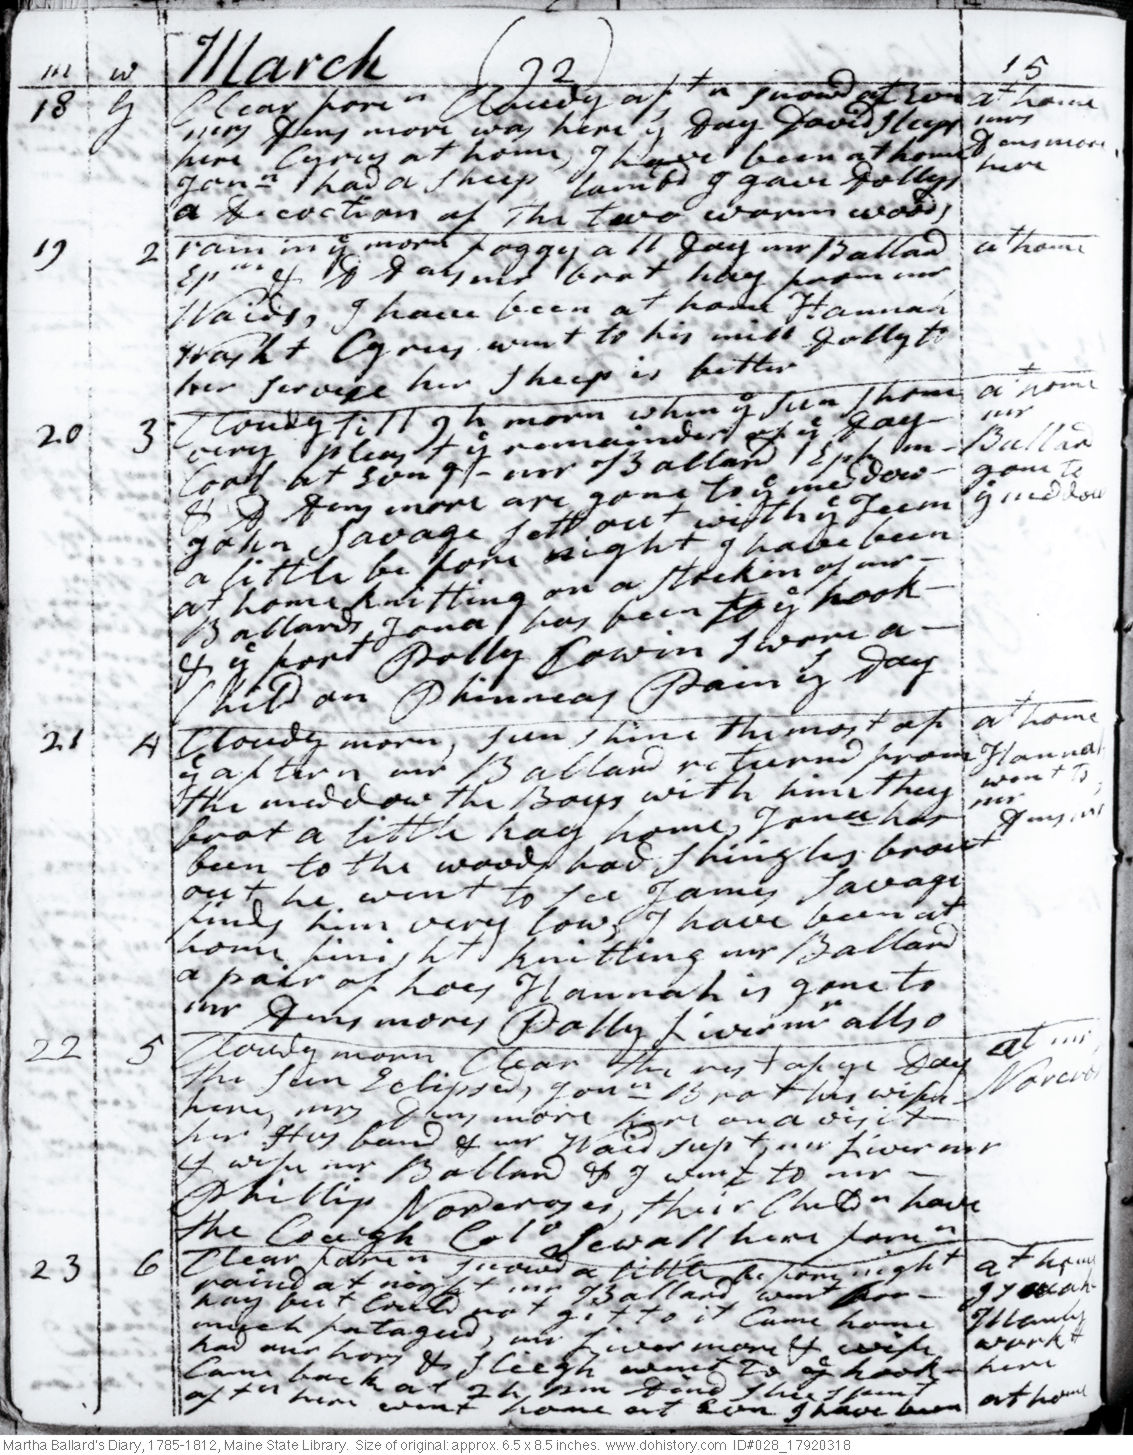 m w March (22) 15
18 G Clear foren Cloudy aftn snowd at Evn at home
mrs Densmore was here ye Day David Sleeps mrs
here Cyrus at home, I have been at home Densmore
Jonn had a Sheep lambd I gave Dollys here
a Decoction of The two worm woods
19 2 rain in ye morn foggy all Day mr Ballard at home
Epm & D Densmr brot hay from mr
Waids, I have been at home Hannah
washt Cyrus went to his mill Dolly to
her Service her Sheep is better
20 3 Cloudy till 9h morn when ye sun shone at home
very pleast ye remainder of ye Day mr
Cool at Evng mr Ballard Ephm Ballard
& D Densmore are gone to ye meddow gone to
John Savage sett out with ye Teem ye meddow
a little before night I have been
at home knitting on a stockin of mr
Ballards Jona has been to ye hook
& ye fort Polly Cowin swore a
Child on Phinneas Pain ye Day
21 4 Cloudy morn, sun shine the most of at home
ye aftern mr Ballard returnd from Hannah
the meddow the Boys with him they went to
brot a little hay home, Jona has mr
been to the woods had shingles brout Densmr
out he went to see James Savage
finds him very low, I have been at
home finisht knitting mr Ballard
a pair of hoes Hannah is gone to
mr Densmores Polly Livermr allso
22 5 Cloudy morn Clear the rest of ye Day at mr
the sun Eclipsed, Jonn Brot his wife Norcros
here, mrs Densmore here on a visit
her Husband & mr Waid supt, mr Livermr
& wife mr Ballard & I went to mr
Phillip Norcroses, their Childn have
the Cough Colo Sewall here foren
23 6 Clear foren snowd a little before night at home
raind at night mr Ballard went for
hay but Could not git to it Came home
much fatagud, mr Livermore & wife workt
had our hors & Sleegh went to ye hook here
Came back at 2h pm Dind shee spent
aftn here went home at Evn I have been at home
Martha Ballard's Diary, 1785-1812, Maine State Library. Size of original: approx. 6.5 x 8.5 inches. www.dohistory.com ID#028_17920318